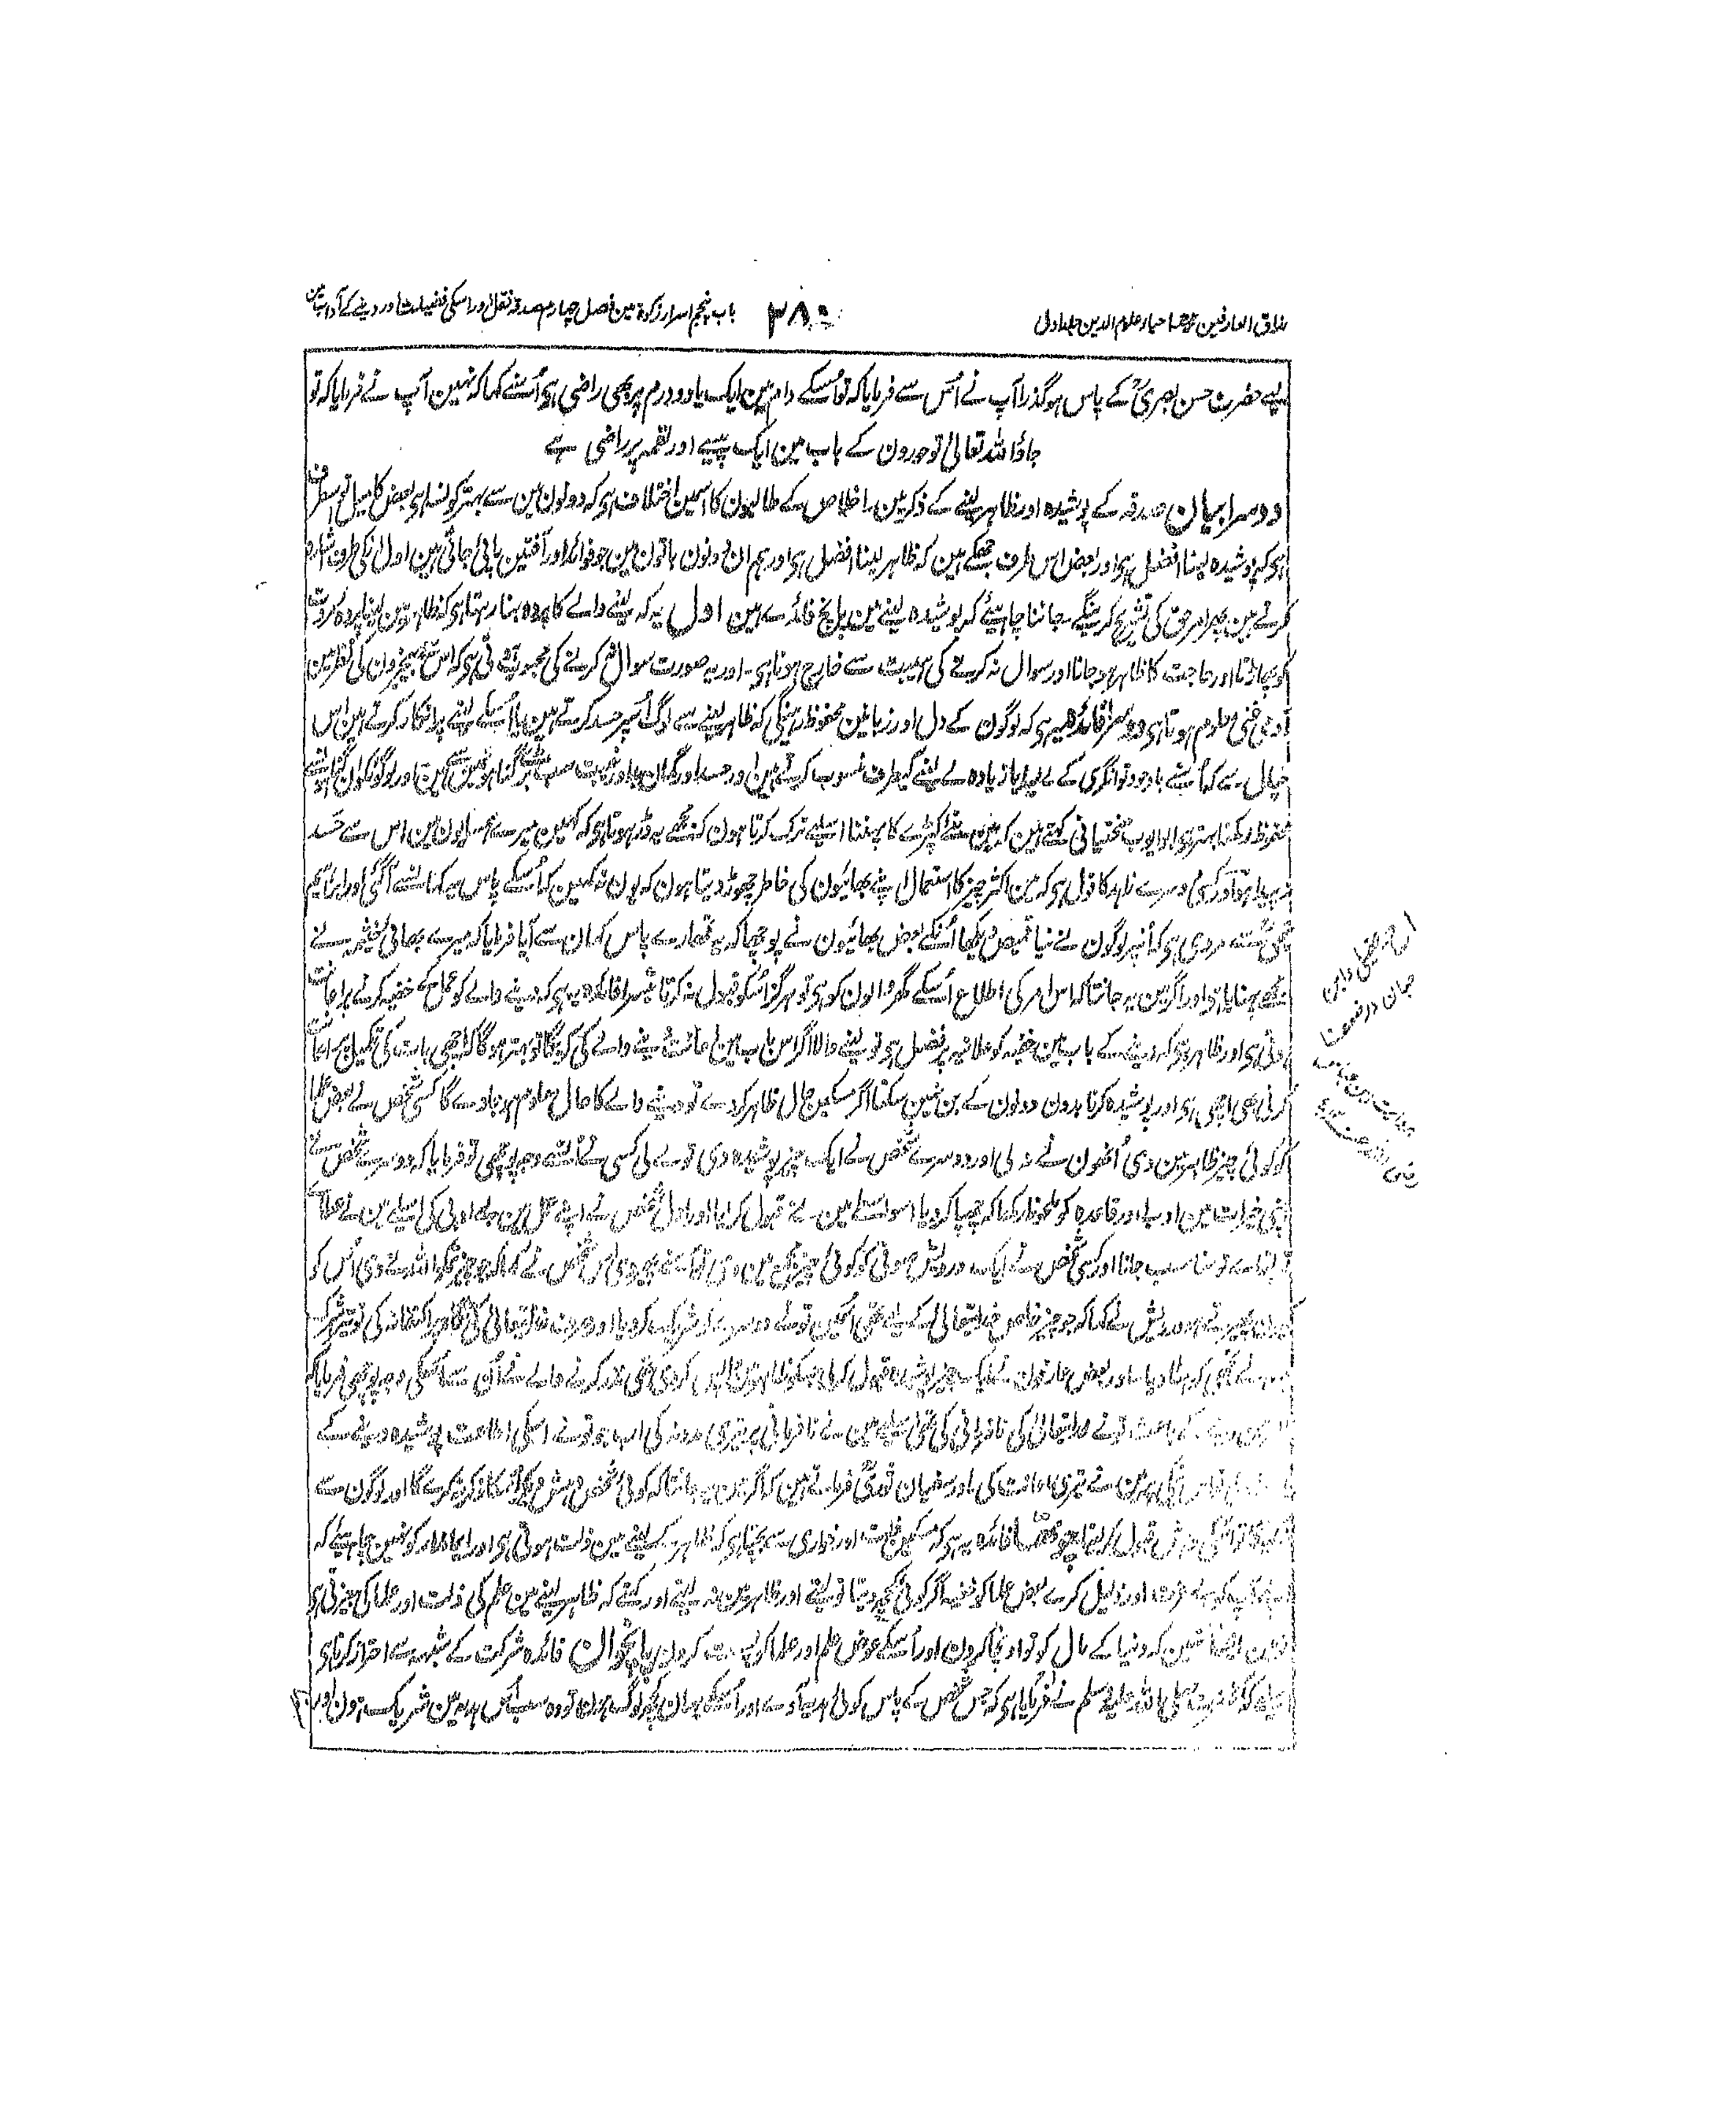 مذاق العارفین ترجمہ احیاء علوم الدین جلد اول
۳۸۰
باب پنجم اسرار زکوٰۃ مین فصل چہارم صدقہ نفل اور اسکی فضیلت اور دینے کے آداب مین
لیے حضرت حسن بصریؒ کے پاس ہو گذرا آپ نے اُس سے فرمایا کہ تو اُسکے دام مین ایک یا دو درم پر بھی راضی ہی اُسنے کہا کہ نہین آپ نے فرمایا کہ تو
جاؤ اللہ تعالیٰ تو حورون کے باب مین ایک پیسے اور لقمہ پر راضی ہے
دوسرا بیان صدقہ کے پوشیدہ اور ظاہر لینے کے ذکر مین۔ اخلاص کے طالبون کا اسمین اختلاف ہی کہ دونون مین سے بہتر کونسا ہی بعض کا میل تو اسطرف
ہی کہ پوشیدہ لینا افضل ہی اور بعض اس طرف جھکے ہین کہ ظاہر لینا افضل ہی اور ہم ان دونون باتون مین جو فوائد اور آفتین پائی جاتی ہین اول اُنکی طرف اشارہ
کرتے ہین پھر امر حق کی تشریح کرینگے۔ جاننا چاہیئے کہ پوشیدہ لینے مین پانچ فائدے ہین اول یہ کہ لینے والے کا پردہ بنا رہتا ہی کہ ظاہر مین لینا پردہ مروت
کو پھاڑنا اور حاجت کا ظاہر ہو جانا اور سوال نہ کرنے کی ہیبت سے خارج ہونا ہی۔ اور یہ صورت سوال نہ کرنے کی محبوب تھی کہ اس سے بیخبرون کی نظر مین
آدمی غنی معلوم ہوتا ہی دوسرا فائدہ یہ ہی کہ لوگون کے دل اور زبانین محفوظ رہینگی کہ ظاہر لینے سے لوگ اُسپر حسد کرتے ہین یا اُسکے لینے پر انکار کرتے ہین اس
خیال سے کہ اُسنے باوجود توانگری کے لے لیا یا زیادہ لے لینے کیطرف منسوب کرتے ہین اور حسد اور گمان بد اور غیبت سب بڑے گناہونمین سے ہین اور لوگونکو ان گناہونسے
محفوظ رکھنا بہتر ہی ابو ایوب سختیانی کہتے ہین کہ مین نئے کپڑے کا پہننا اسلیے ترک کرتا ہون کہ مجھے یہ ڈر ہوتا ہی کہ کہین میرے ہمسایون مین اس سے حسد
نہ پیدا ہو اور کسی دوسرے زاہد کا قول ہی کہ مین اکثر چیز کا استعمال اپنے بھائیون کی خاطر چھوڑ دیتا ہون کہ یون نہ کہین کہ اُسکے پاس یہ کہانسے آگئی اور ابراہیم
تیمیؒ سے مروی ہی کہ اُنپر لوگون نے نیا قمیص دیکھا اُنکے بعض بھائیون نے پوچھا کہ یہ تمھارے پاس کہان سے آیا فرمایا کہ میرے بھائی خیثمہ نے
مجھے پہنایا ہی اور اگر مین یہ جانتا کہ اس امر کی اطلاع اُسکے گھر والون کو ہی تو ہرگز اُسکو قبول نہ کرتا تیسرا فائدہ یہ ہی کہ دینے والے کو عمل کے خفیہ کرنے پر اعانت
ہوتی ہی اور ظاہر ہی کہ دینے کے باب مین خفیہ کو علانیہ پر فضل ہی تو لینے والا اگر اس باب مین اعانت دینے والے کی کریگا تو بہتر ہوگا کہ اچھی بات کی تکمیل پر اعانت
کرنی بھی اچھی ہی اور پوشیدہ کرنا بدون دونون کے بن نہین سکتا اگر مسکین حال ظاہر کر دے تو دینے والے کا حال معلوم ہو جاوے گا کسی شخص نے بعض علما
کو کوئی چیز ظاہر مین دی اُنھون نے نہ لی اور دوسرے شخص نے ایک چیز پوشیدہ دی تو لے لی کسی نے اُنسے وجہ پوچھی تو فرمایا کہ دوسرے شخص نے
اپنی خیرات مین ادب اور قاعدہ کو ملحوظ رکھا کہ چھپا کر دیا اسواسطے مین نے قبول کر لیا اور اول شخص نے اپنے عمل مین بے ادبی کی اسلیے مین نے
مناسب جانا اور کسی شخص نے ایک درویش صوفی کو کوئی چیز مجمع مین دی تو اُسنے پھیر دی اُس شخص نے کہا کہ جو چیز تمکو اللہ نے دی اُس کو
کیون پھیرتے ہو درویش نے کہا کہ جو چیز خاص خدا تعالیٰ کے لیے تھی اُسمین تونے دوسرے کو شریک کر دیا اور صرف خدا تعالیٰ کی نگاہ پر اکتفا نہ کی
اور بعض عارفون نے ایک چیز پوشیدہ قبول کر لی جسکو ظاہر مین واپس کر دی تھی نذر کرنے والے نے اُن سے اسکی وجہ پوچھی فرمایا کہ
تونے خدا تعالیٰ کی نافرمانی کی تھی اسلیے مین نے نافرمانی پر تیری مدد نہ کی اب جو تونے اسکی اطاعت پوشیدہ دینے سے
مین نے تیری اعانت کی اور سفیان ثوریؒ فرماتے ہین کہ اگر مین یہ جانتا کہ کوئی شخص اُسکا ذکر نہ کرے گا اور لوگون سے
قبول کر لیتا چوتھا فائدہ یہ ہی کہ مسکین ذلت اور خواری سے بچتا ہی کہ ظاہر کے لینے مین ذلت ہوتی ہی اور ایماندار کو نہین چاہیئے کہ
اپنے آپ کو بے عزت اور ذلیل کرے بعض علما کو خفیہ اگر کوئی کچھ دیتا تو لیتے اور ظاہر مین نہ لیتے اور کہتے کہ ظاہر لینے مین علم کی ذلت اور علما کی بیعزتی ہی
کہ دنیا کے مال کو تو اونچا کرون اور اُسکے عوض علم اور علما کو پست کرون پانچوان فائدہ شرکت کے شبہہ سے احتراز کرنا ہی
صلی اللہ علیہ وسلم نے فرمایا ہی کہ جس شخص کے پاس کوئی ہدیہ آوے اور اُسکے یہان کچھ لوگ ہون تو وہ سب اُس ہدیہ مین شریک ہون اور